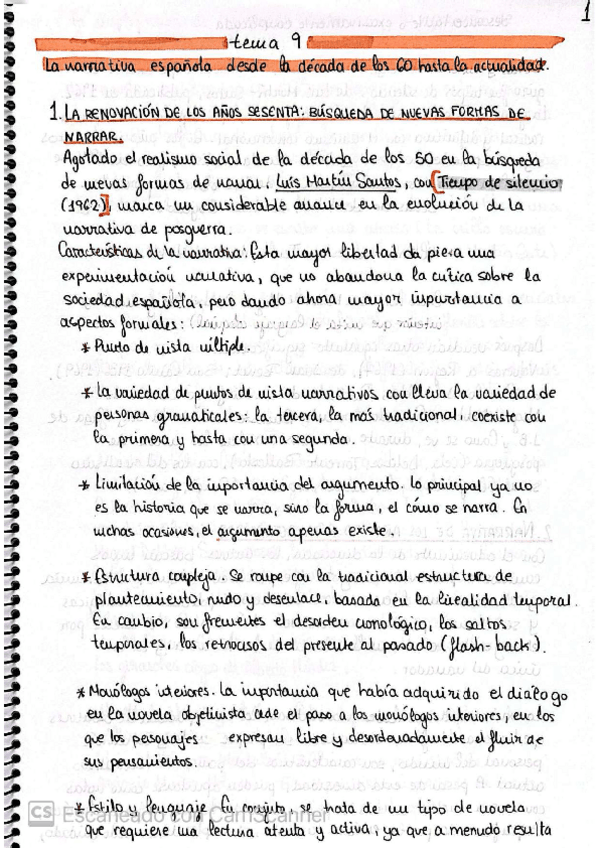 1
tema 9
La narrativa española desde la década de los 60 hasta la actualidad.
1. LA RENOVACIÓN DE LOS AÑOS SESENTA: BÚSQUEDA DE NUEVAS FORMAS DE
NARRAR.
Agotado el realismo social de la década de los 50 en la búsqueda
de nuevas formas de narrar. Luis Martín Santos, con Tiempo de silencio
(1962), marca un considerable avance en la evolución de la
narrativa de posguerra.
Características de la narrativa: Esta mayor libertad da pie a una
experimentación narrativa, que no abandona la crítica sobre la
sociedad española, pero dando ahora mayor importancia a
aspectos formales:
* Punto de vista múltiple.
* La variedad de puntos de vista narrativos conlleva la variedad de
personas gramaticales: la tercera, la más tradicional, coexiste con
la primera y hasta con una segunda.
* Limitación de la importancia del argumento. Lo principal ya no
es la historia que se narra, sino la forma, el cómo se narra. En
muchas ocasiones, el argumento apenas existe.
* Estructura compleja. Se rompe con la tradicional estructura de
planteamiento, nudo y desenlace, basada en la linealidad temporal.
En cambio, son frecuentes el desorden cronológico, los saltos
temporales, los retrocesos del presente al pasado (flash-back).
* Monólogos interiores. La importancia que había adquirido el diálogo
en la novela objetivista cede el paso a los monólogos interiores, en los
que los personajes expresan libre y desordenadamente el fluir de
sus pensamientos.
* Estilo y lenguaje. En conjunto, se trata de un tipo de novela
que requiere una lectura atenta y activa, ya que a menudo resulta
CS Escaneado con CamScanner